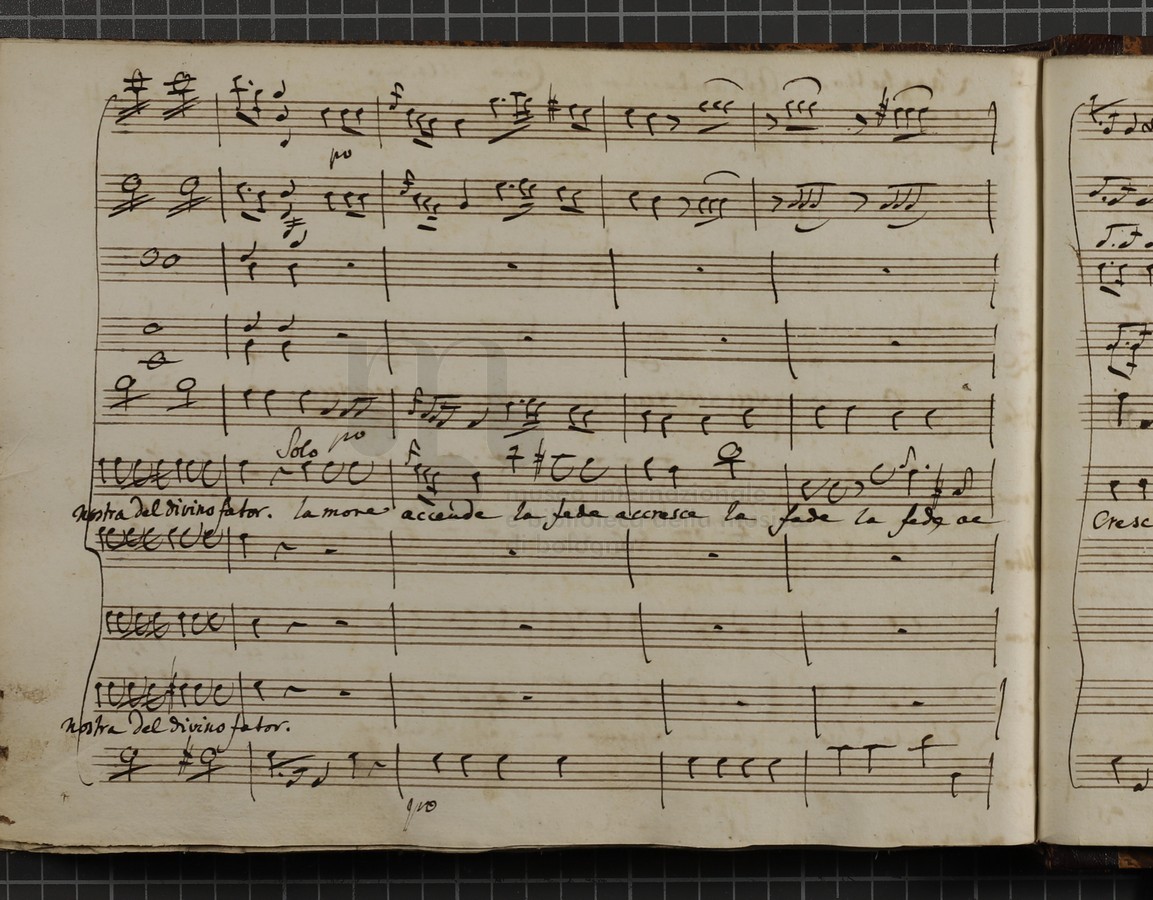 po
Solo po
nostra del divino fator. lamore accende la fede accresce la fede la fede ac
Cresc
museo internazionale
e biblioteca della musica
di bologna
nostra del divino fator.